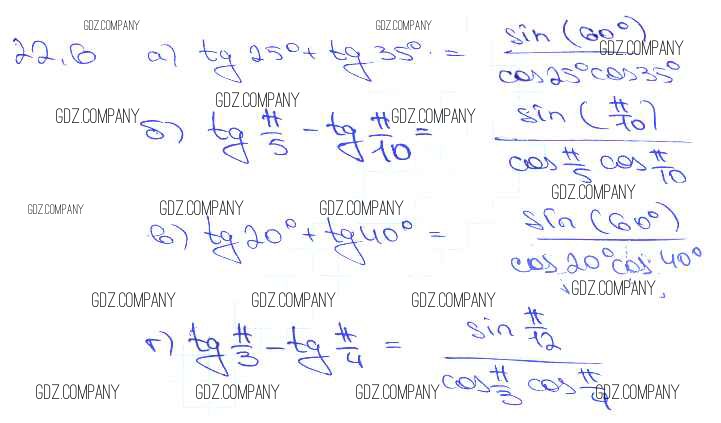 GDZ.COMPANY GDZ.COMPANY
22.6 а) tg 25° + tg 35° = sin (60°) / cos 25° cos 35°
GDZ.COMPANY
GDZ.COMPANY GDZ.COMPANY GDZ.COMPANY
б) tg π/5 - tg π/10 = sin (π/10) / cos π/5 cos π/10
GDZ.COMPANY
GDZ.COMPANY GDZ.COMPANY GDZ.COMPANY
в) tg 20° + tg 40° = sin (60°) / cos 20° cos 40°
GDZ.COMPANY
GDZ.COMPANY GDZ.COMPANY GDZ.COMPANY
г) tg π/3 - tg π/4 = sin π/12 / cos π/3 cos π/4
GDZ.COMPANY GDZ.COMPANY GDZ.COMPANY GDZ.COMPANY